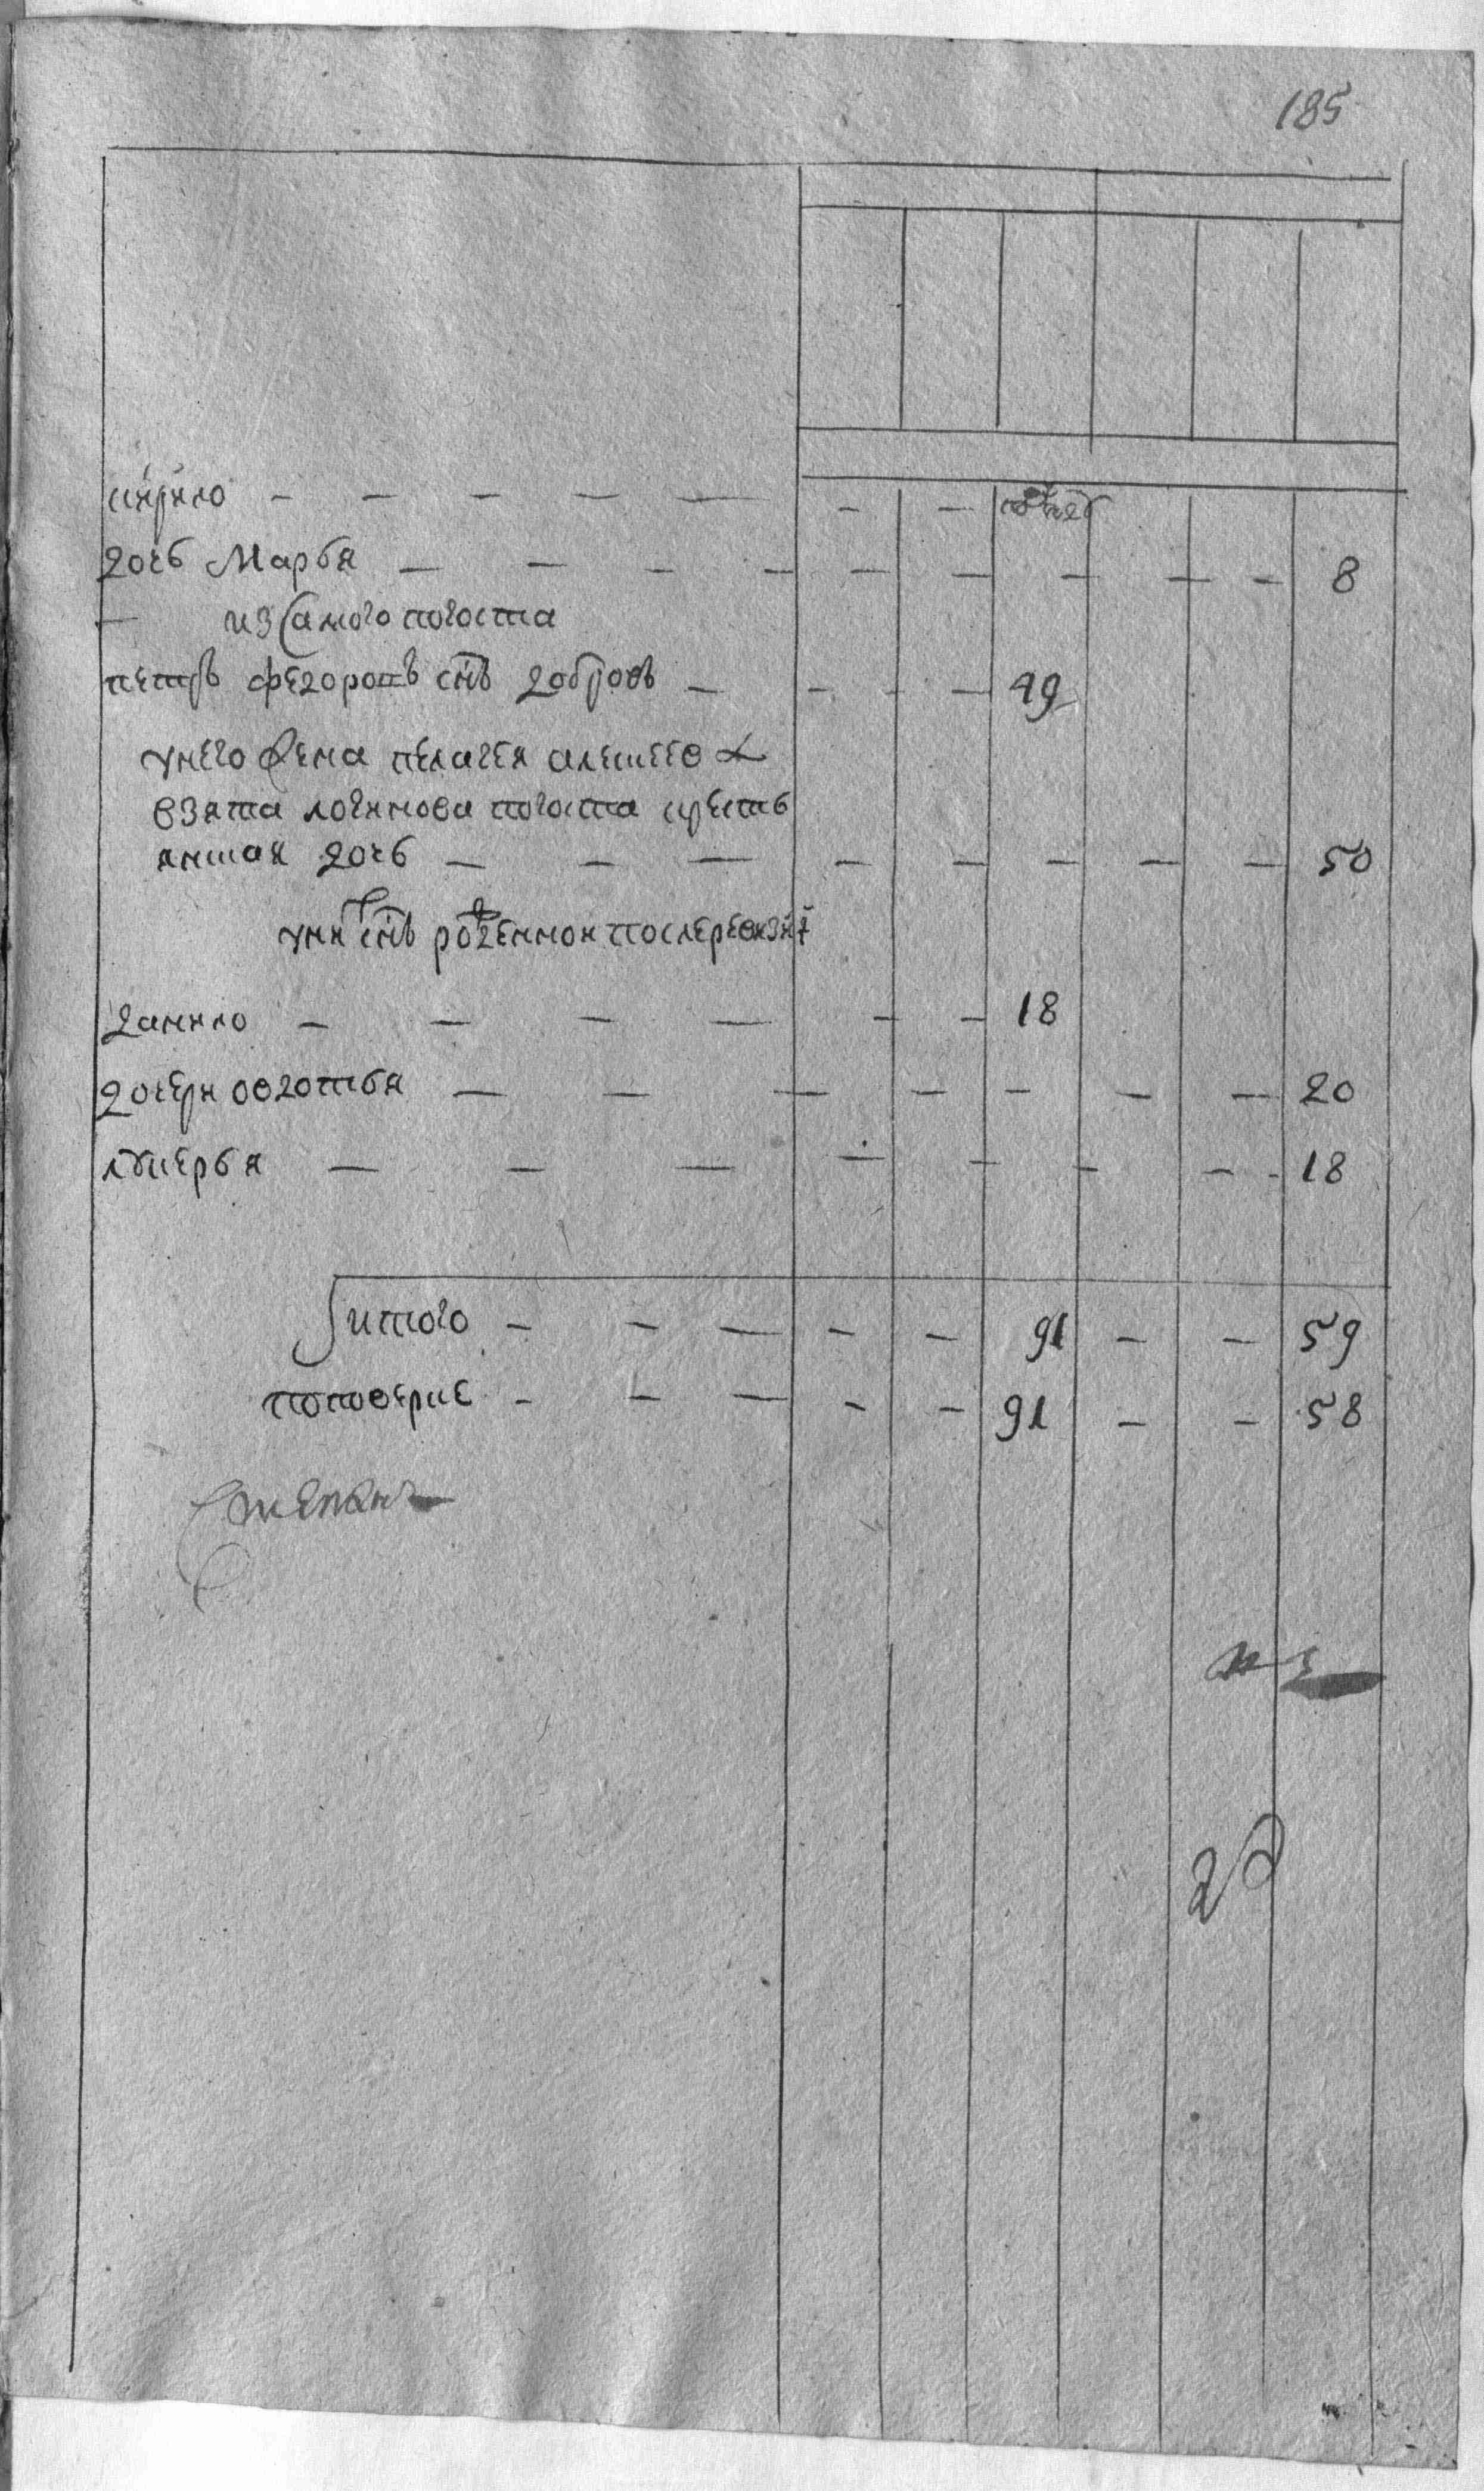 185
кирило — — — — — — —
дочь Марья — — — — — — — — — 8
— из самого погоста
петръ федоровъ снъ добровъ — — — — 49
унего жена пелагея алексеева
взята логинова погоста кресть
янская дочь — — — — — — — — 50
уни снъ рожденной послеревизїи
данило — — — — — — 18
дочери овдотья — — — — — — — 20
лукерья — — — — — — — - 18
итого — — — — — 91 — — 59
поповерке — — — — — 91 — — 58